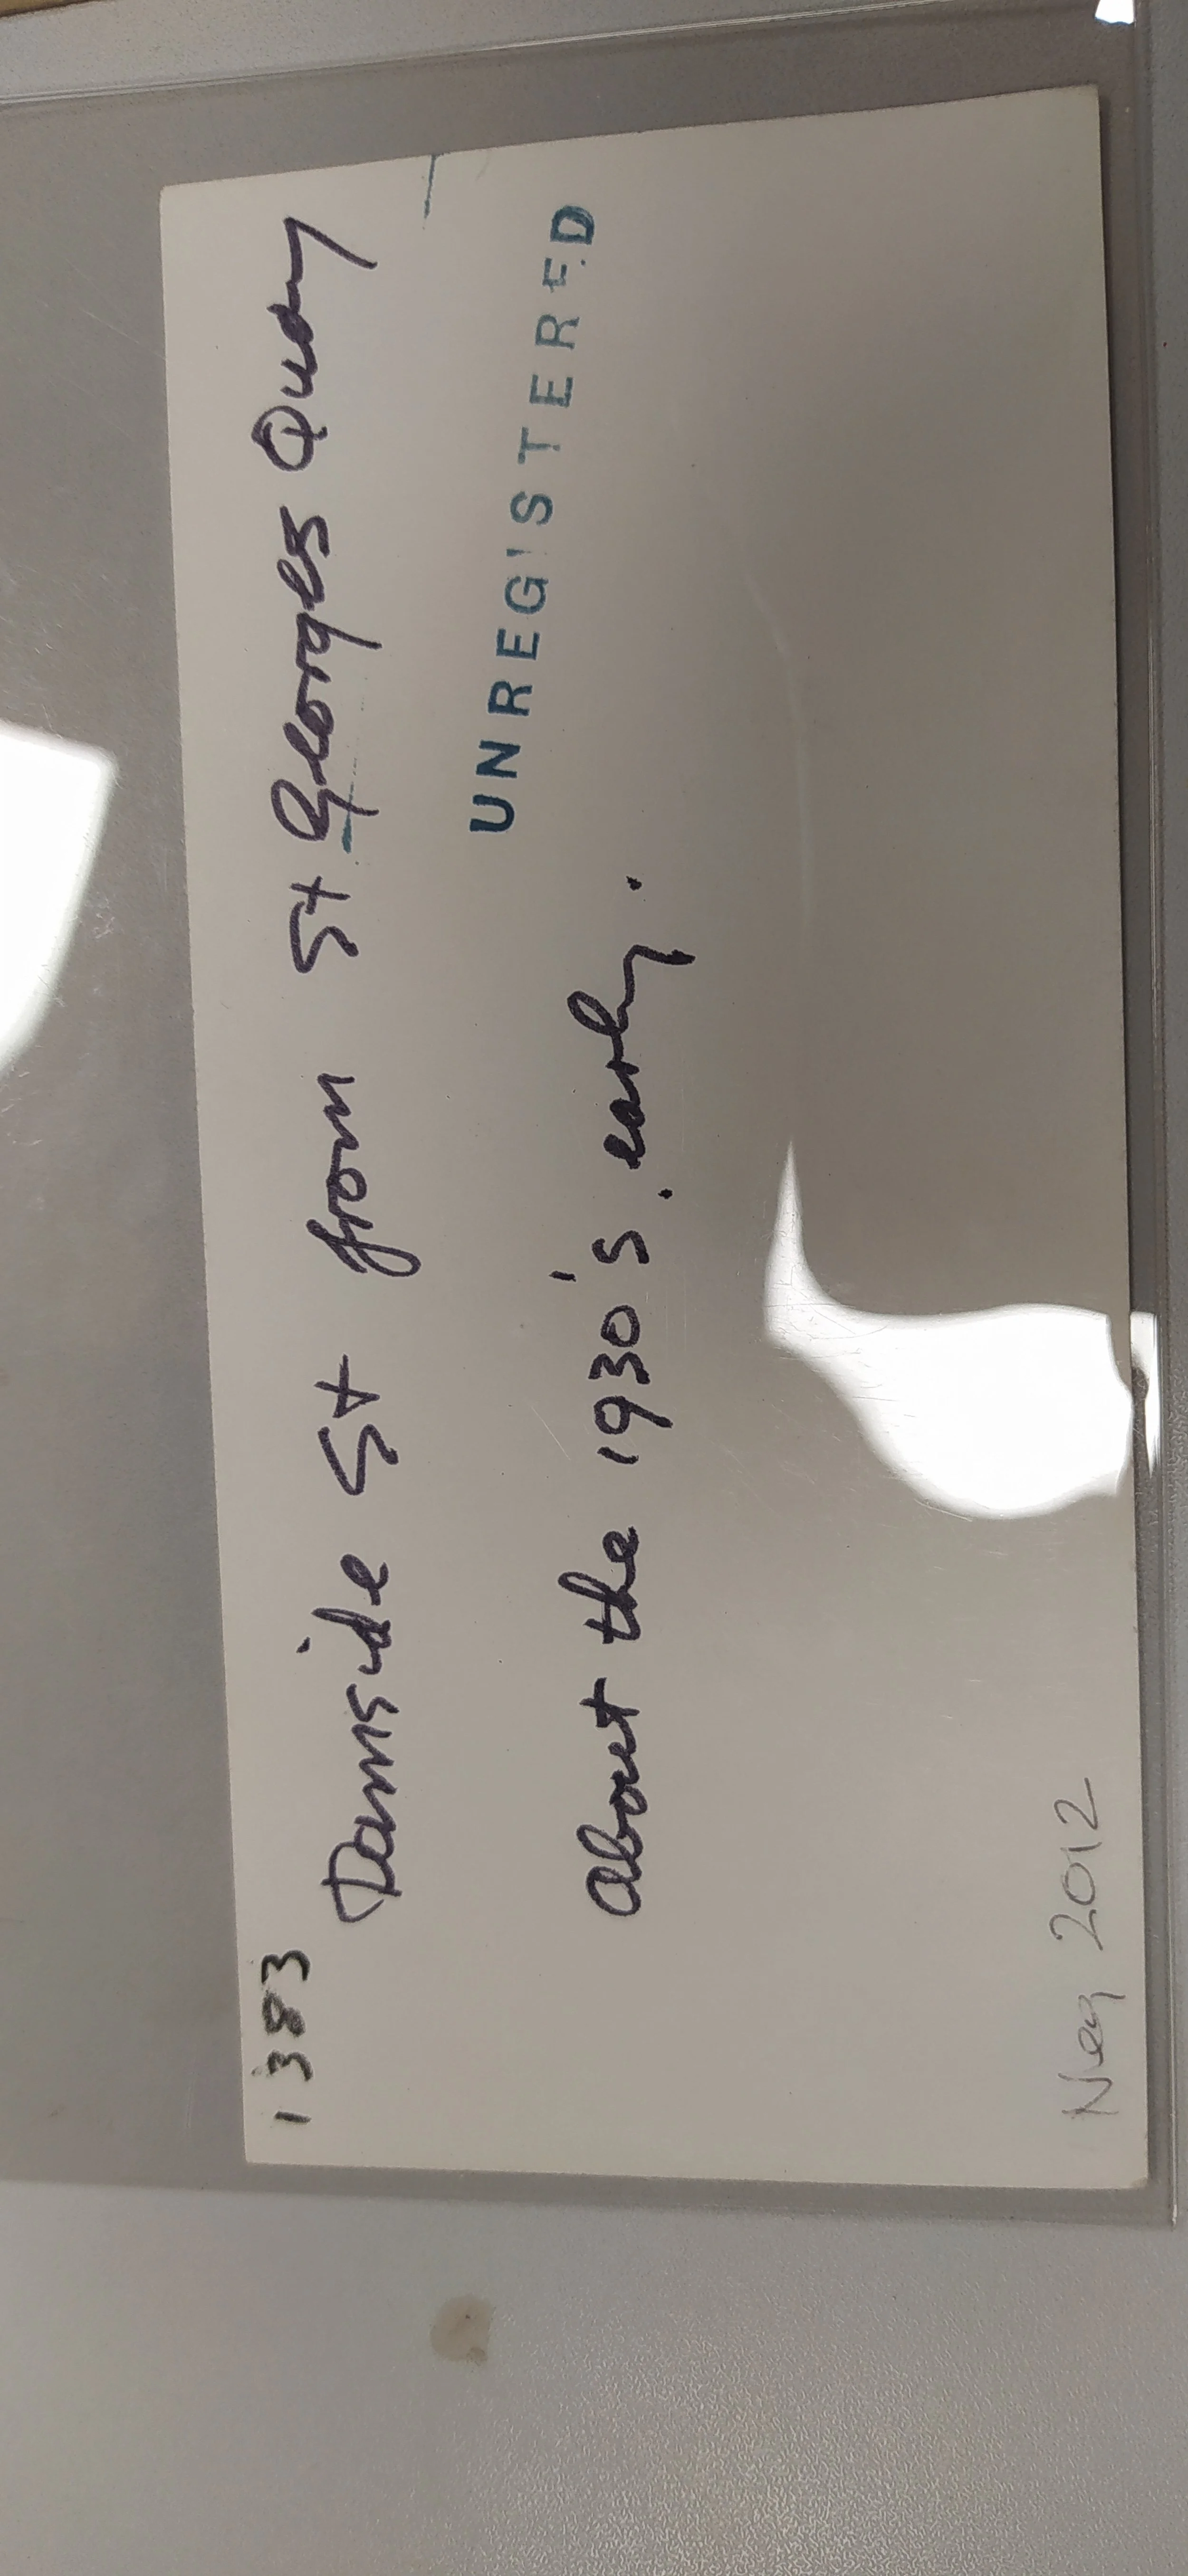 1383
Damside St from St Georges Quay
UNREGISTERED
About the 1930's. early.
Neg 2012